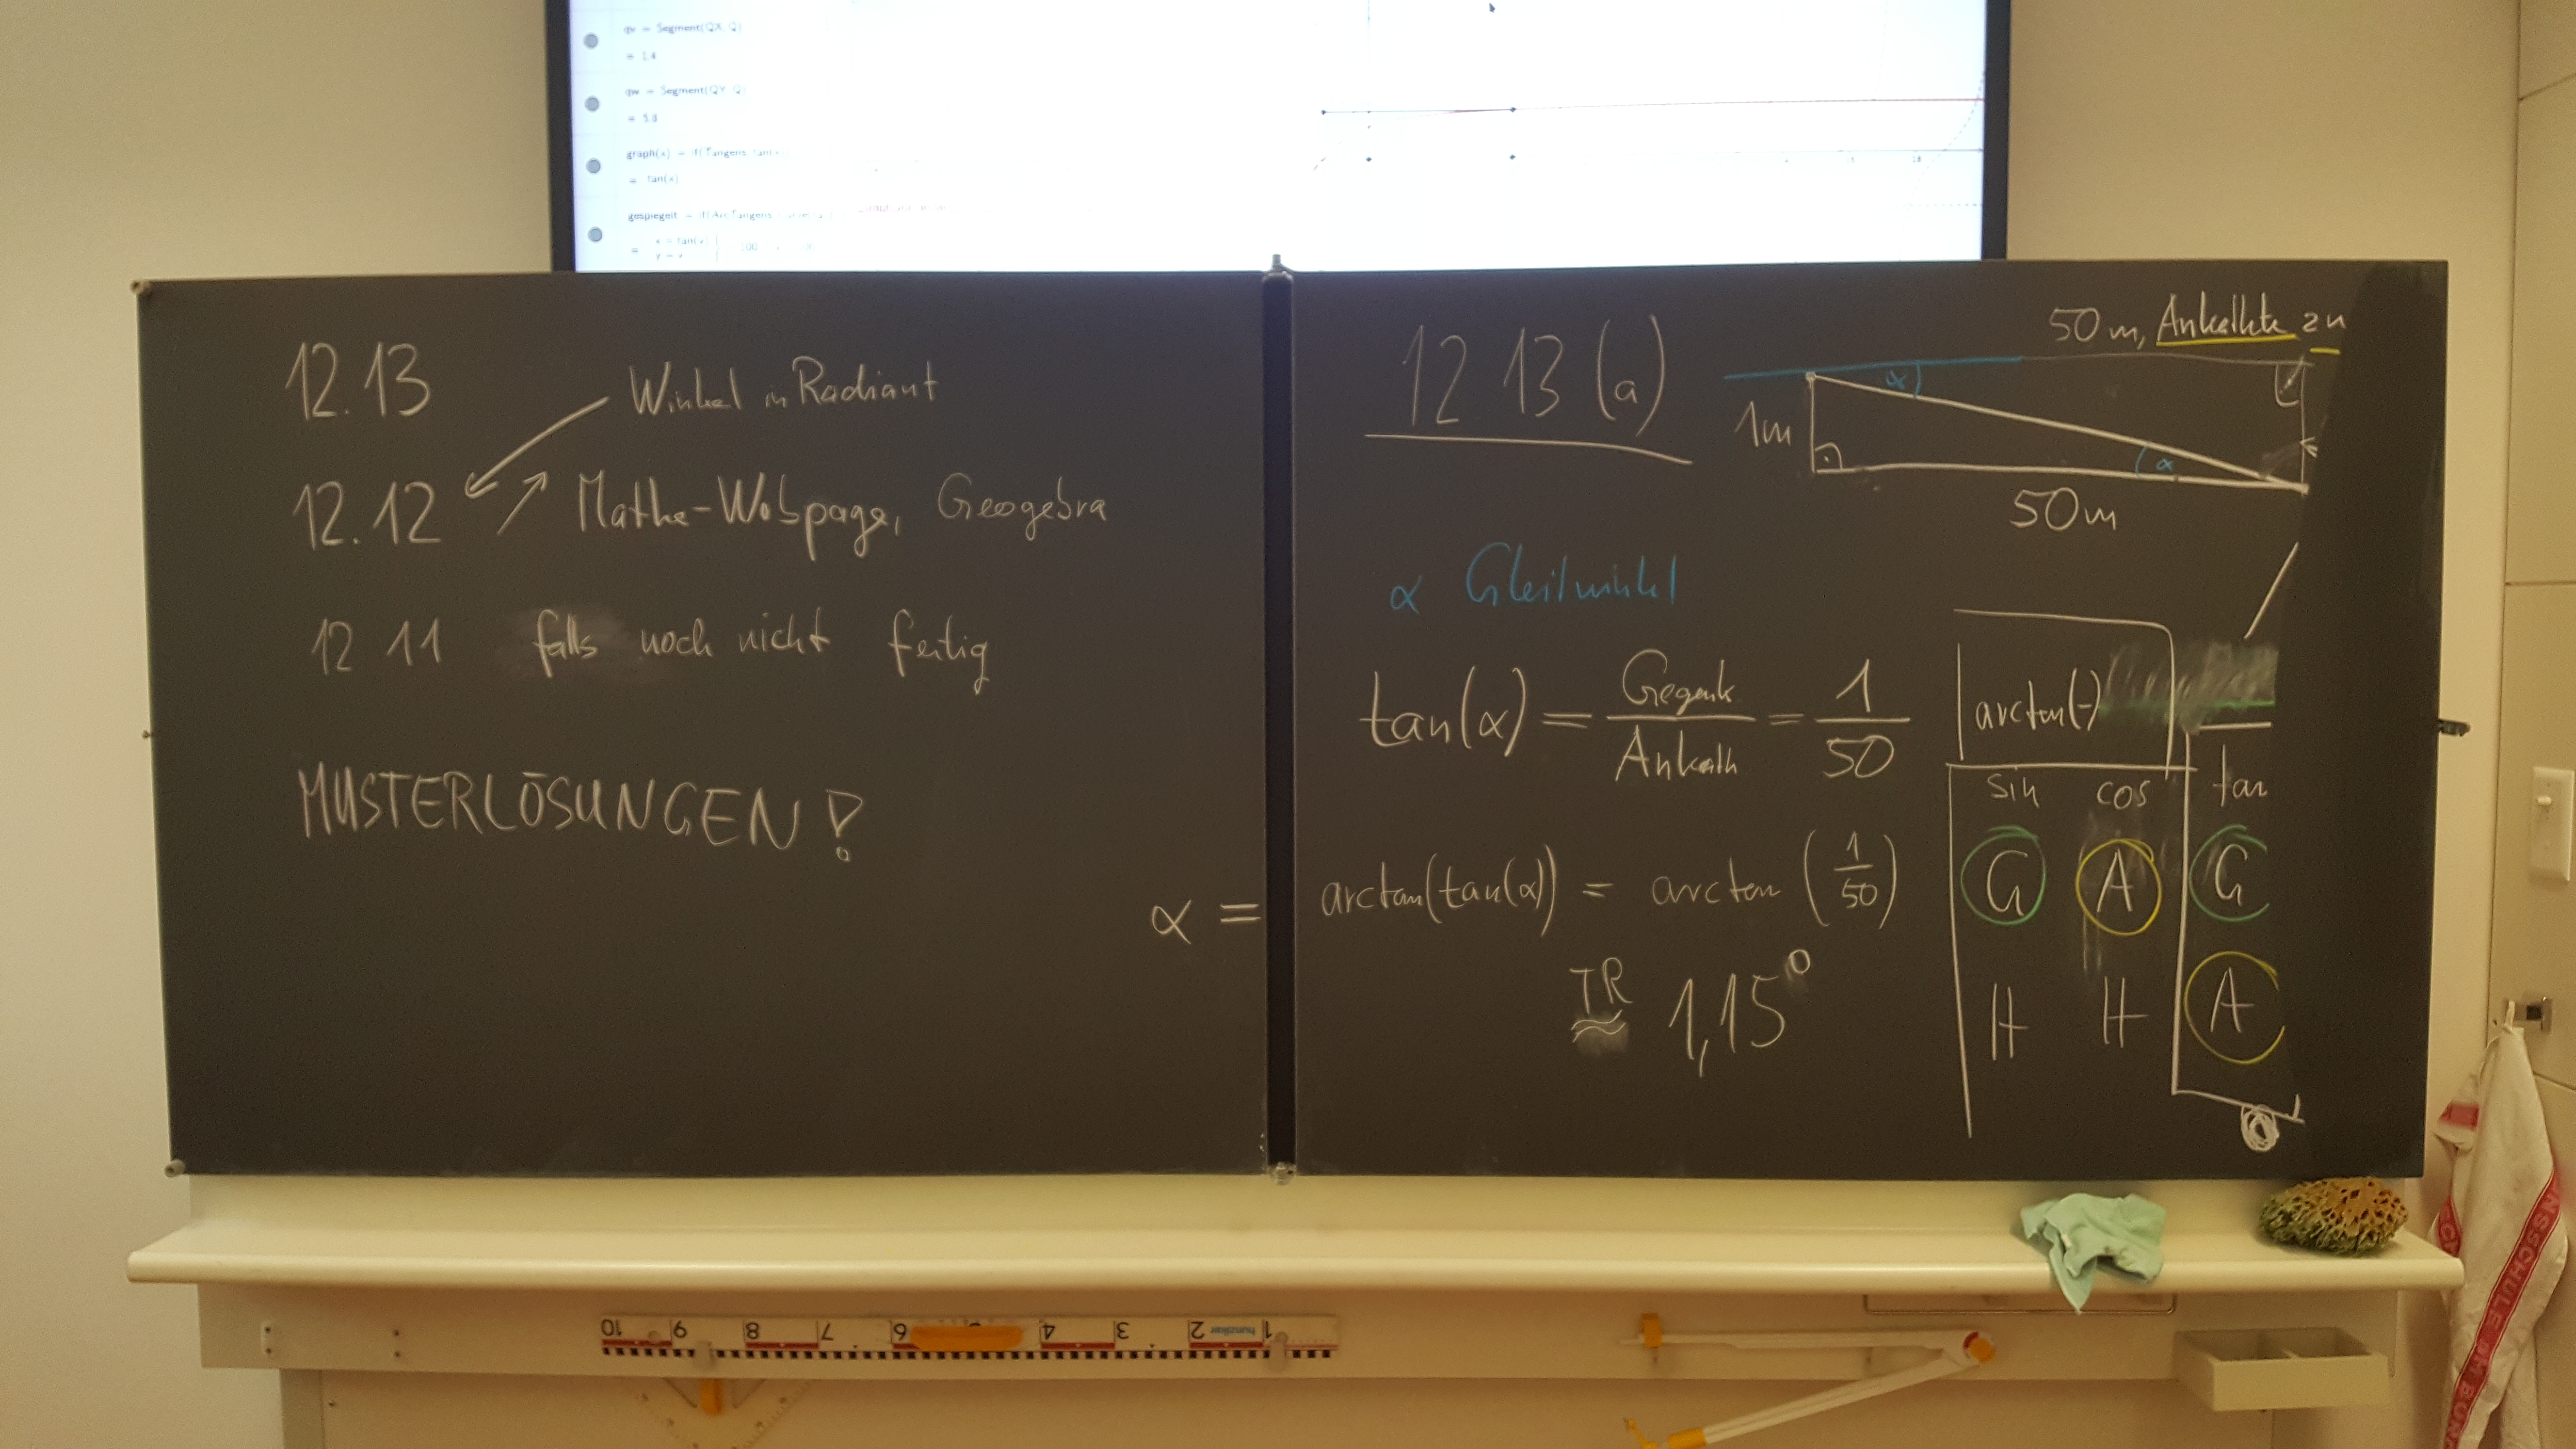 qv = Segment(QX, Q)
= 1.4
qw = Segment(QY, Q)
= 5.8
graph(x) = If(Tangens, tan(x)
= tan(x)
gespiegelt = If(ArcTangens,
12.13
Winkel in Radiant
12.12
Mathe-Webpage, Geogebra
12 11 falls noch nicht fertig
MUSTERLÖSUNGEN!
12 13 (a)
50 m, Ankathete zu
α
1m
α
50m
α Gleitwinkel
tan(α) = Gegenk / Ankath = 1 / 50
arctan(-)
α = arctan(tan(α)) = arctan (1/50)
TR ≈ 1,15°
sin cos tan
G A G
H H A
10 9 8 7 6 5 4 3 2 hunziker 1